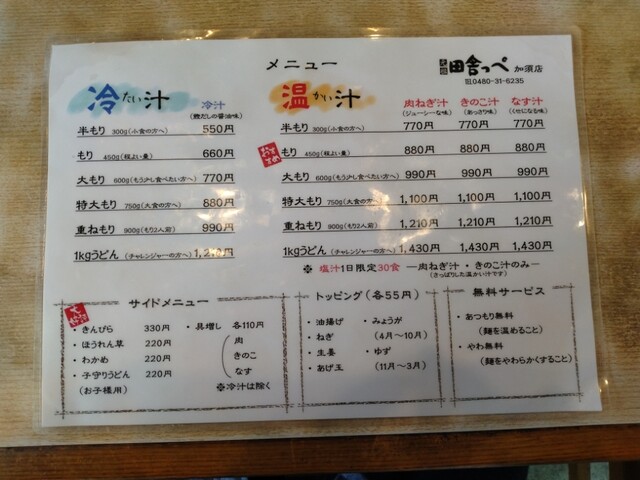 メニュー
田舎っぺ 加須店
TEL0480-31-6235
冷たい汁
冷汁
(鰹だしの醤油味)
半もり 300g(小食の方へ) 550円
もり 450g(程よい量) 660円
大もり 600g(もう少し食べたい方へ) 770円
特大もり 750g(大食の方へ) 880円
重ねもり 900g(もり2人前) 990円
1kgうどん (チャレンジャーの方へ)
温かい汁
肉ねぎ汁 きのこ汁 なす汁
(ジューシーな味) (あっさり味) (くせになる味)
半もり 300g(小食の方へ) 770円 770円 770円
おすすめ
もり 450g(程よい量) 880円 880円 880円
大もり 600g(もう少し食べたい方へ) 990円 990円 990円
特大もり 750g(大食の方へ) 1,100円 1,100円 1,100円
重ねもり 900g(もり2人前) 1,210円 1,210円 1,210円
1kgうどん (チャレンジャーの方へ) 1,430円 1,430円 1,430円
※ 塩汁1日限定30食 ―肉ねぎ汁・きのこ汁のみ―
(さっぱりした温かい汁です)
サイドメニュー
・きんぴら 330円
・ほうれん草 220円
・わかめ 220円
・子守りうどん 220円
(お子様用)
・具増し 各110円
肉
きのこ
なす
※冷汁は除く
トッピング(各55円)
・油揚げ
・ねぎ
・生姜
・あげ玉
・みょうが
(4月~10月)
・ゆず
(11月~3月)
無料サービス
・あつもり無料
(麺を温めること)
・やわ無料
(麺をやわらかくすること)